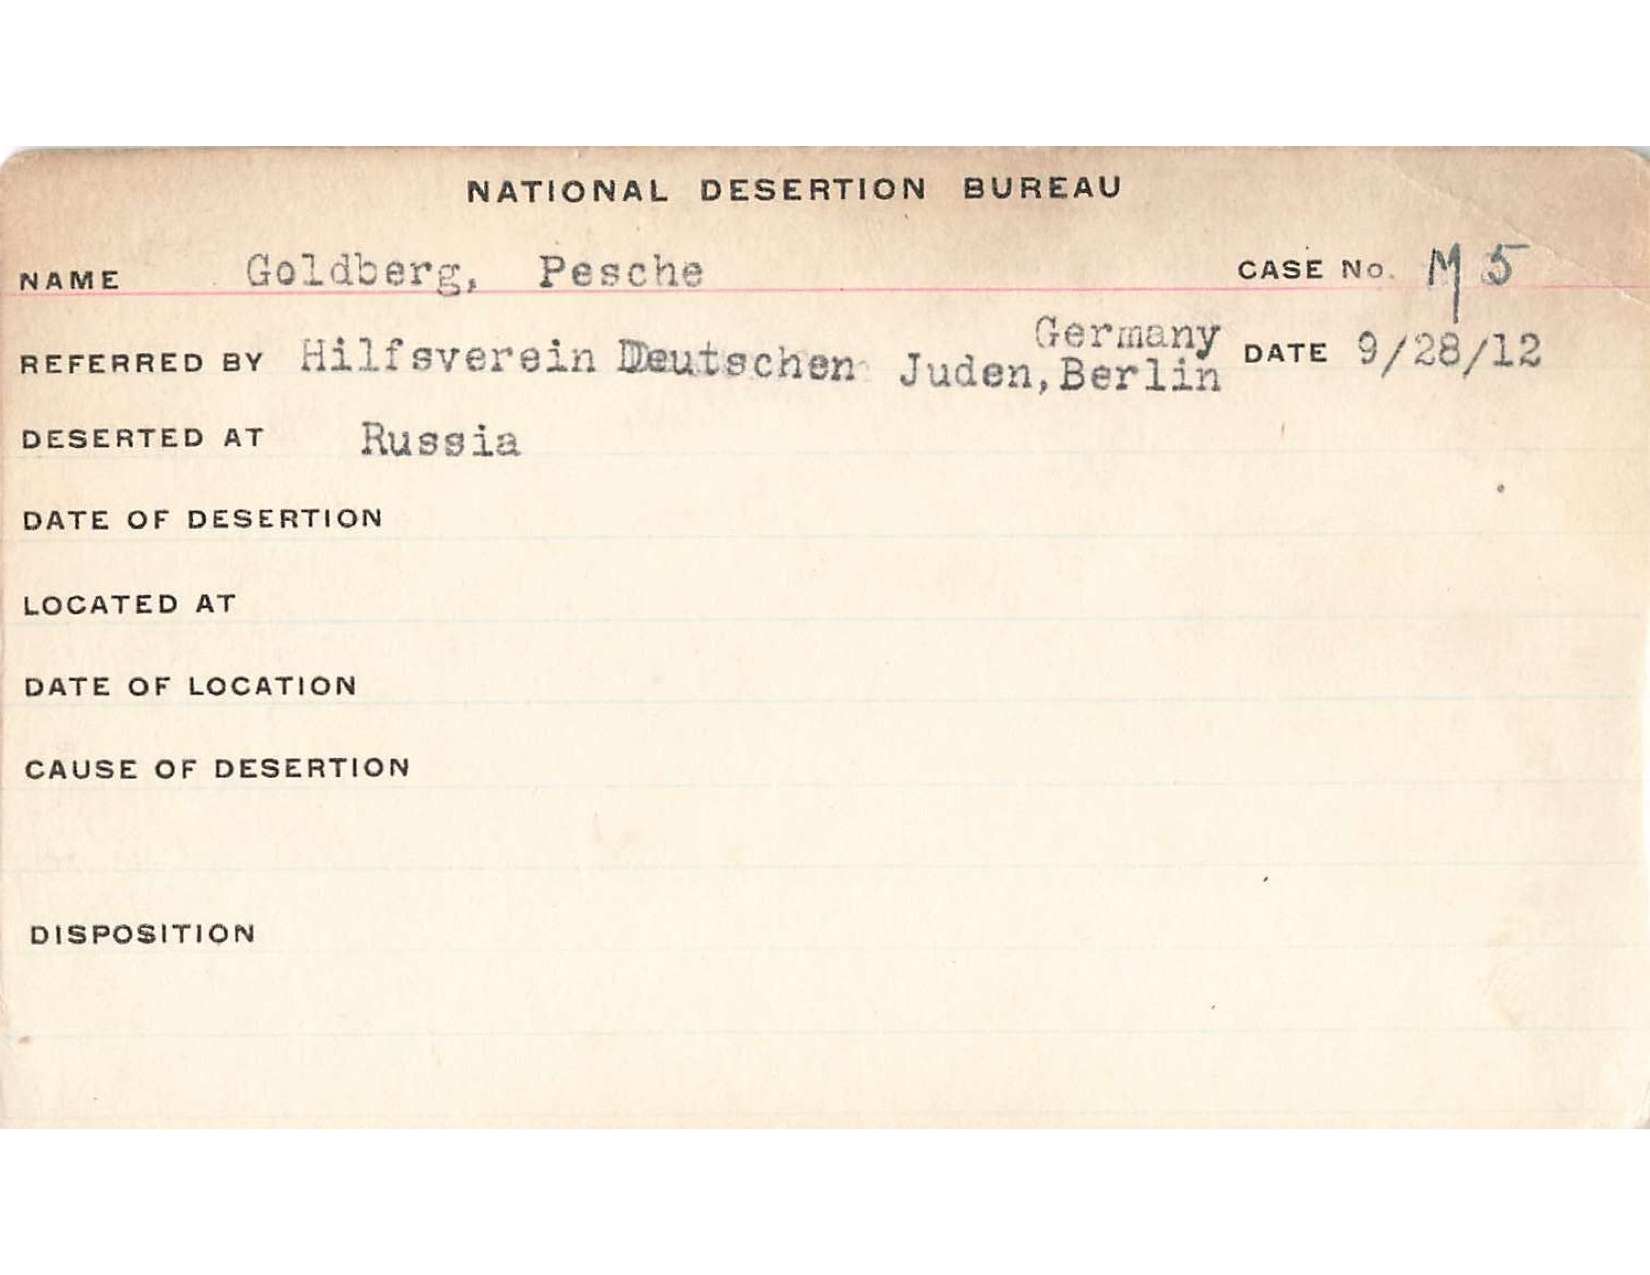 NATIONAL DESERTION BUREAU
NAME Goldberg, Pesche CASE No. M 5
REFERRED BY Hilfsverein Deutschen Juden, Berlin Germany DATE 9/28/12
DESERTED AT Russia
DATE OF DESERTION
LOCATED AT
DATE OF LOCATION
CAUSE OF DESERTION
DISPOSITION